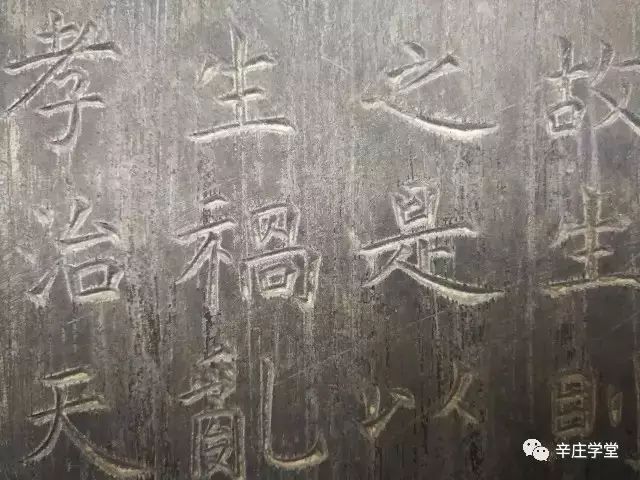 故生則
之是以
生禍亂
孝治天
辛庄学堂